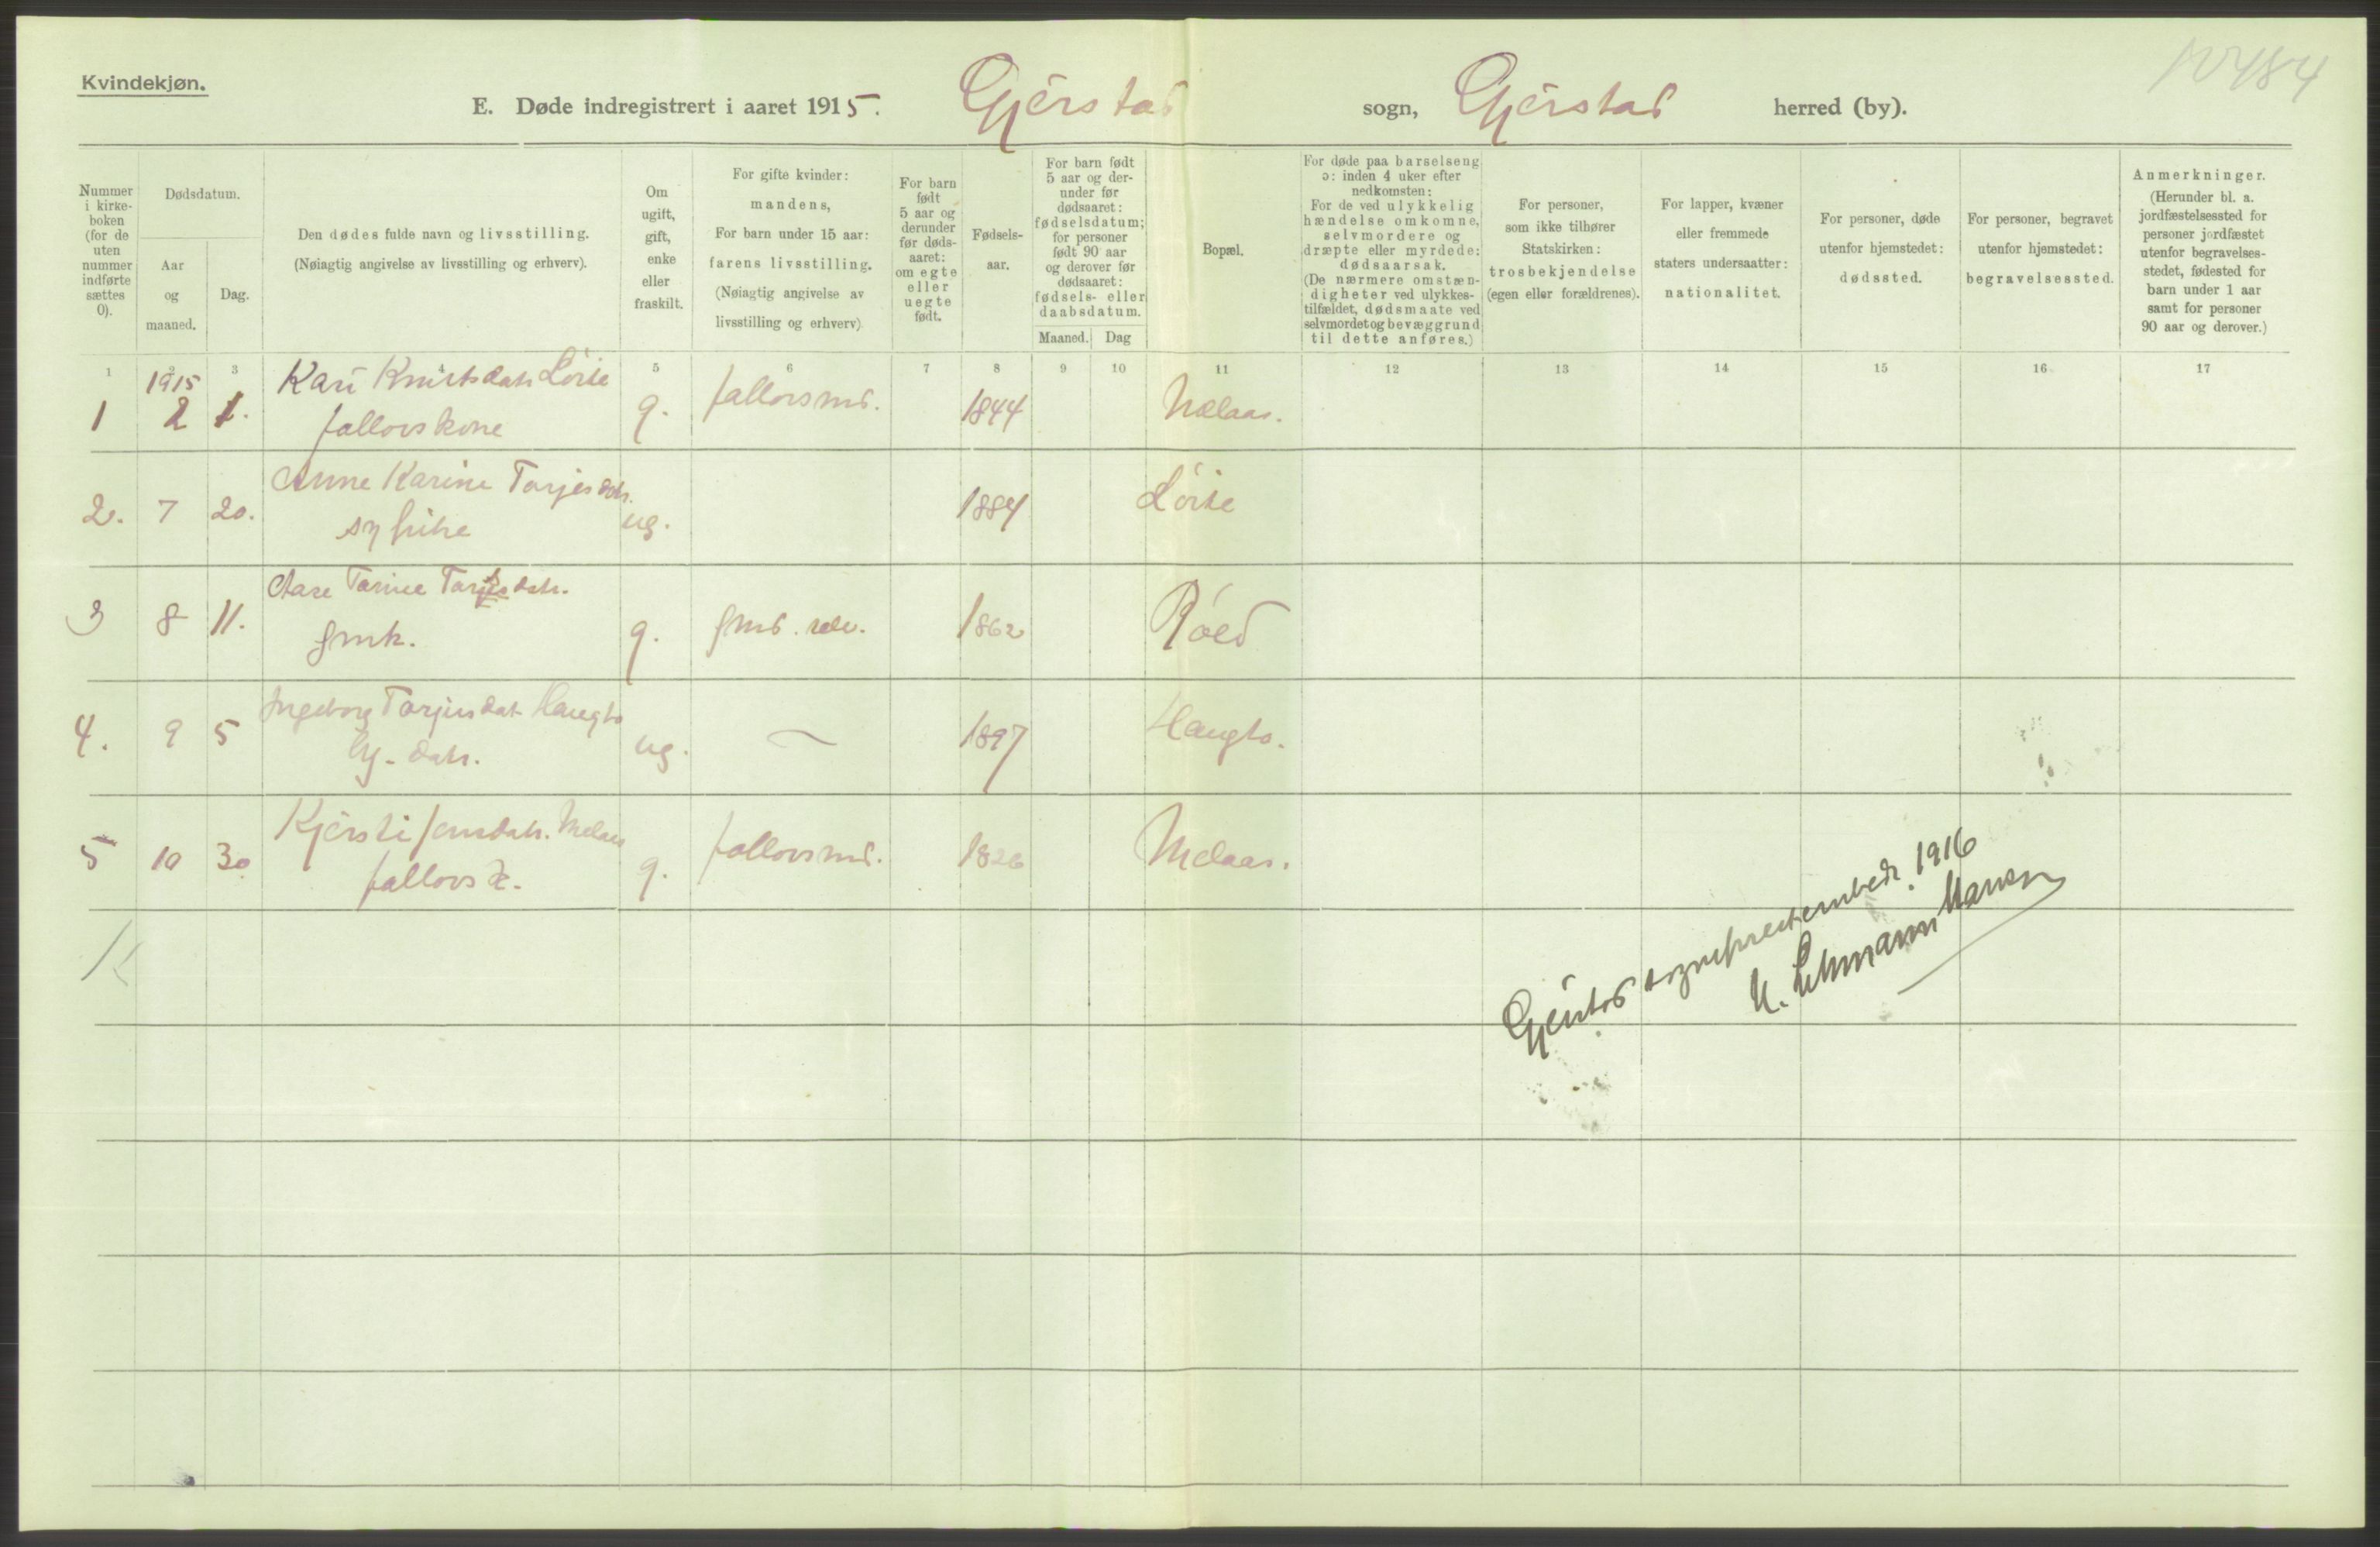 Kvindekjøn.
E. Døde indregistrert i aaret 1915. Gjerstad sogn, Gjerstad herred (by).
Nummer i kirke-boken (for de uten nummer indførte sættes 0).
Dødsdatum.
Aar og maaned.
Dag.
Den dødes fulde navn og livsstilling.
(Nøiagtig angivelse av livsstilling og erhverv).
Om ugift, gift, enke eller fraskilt.
For gifte kvinder: mandens,
For barn under 15 aar: farens livsstilling.
(Nøiagtig angivelse av livsstilling og erhverv)
For barn født 5 aar og derunder før døds-aaret: om egte eller uegte født.
Fødsels-aar.
For barn født 5 aar og der-under før dødsaaret: fødselsdatum; for personer født 90 aar og derover før dødsaaret: fødsels- eller daabsdatum.
Maaned. Dag
Bopæl.
For døde paa barselseng ɔ: inden 4 uker efter nedkomsten:
For de ved ulykkelig hændelse omkomne, selvmordere og dræpte eller myrdede: dødsaarsak.
(De nærmere omstæn-digheter ved ulykkes-tilfældet, dødsmaate ved selvmordet og bevæggrund til dette anføres.)
For personer, som ikke tilhører Statskirken: trosbekjendelse (egen eller forældrenes).
For lapper, kvæner eller fremmede staters undersaatter: nationalitet.
For personer, døde utenfor hjemstedet: dødssted.
For personer, begravet utenfor hjemstedet: begravelsessted.
Anmerkninger.
(Herunder bl. a. jordfæstelsessted for personer jordfæstet utenfor begravelses-stedet, fødested for barn under 1 aar samt for personer 90 aar og derover.)
1 2 3 4 5 6 7 8 9 10 11 12 13 14 15 16 17
1915
1 2 1. Kari Knutsdatr g. 1844
2. 7 20. Anne Karine Tarjesdtr. ug. 1884
3 8 11. Aase Tarine Tarjesdatr. gmk. g. 1862 Röed
4. 9 5 Ingeborg Tarjusdat Haugto ug. — 1897 Haugto.
5 10 30 Kjersti Jensdatr. Melaas g. 1826 Melaas.
Gjerstad sogneprestembede. 1916